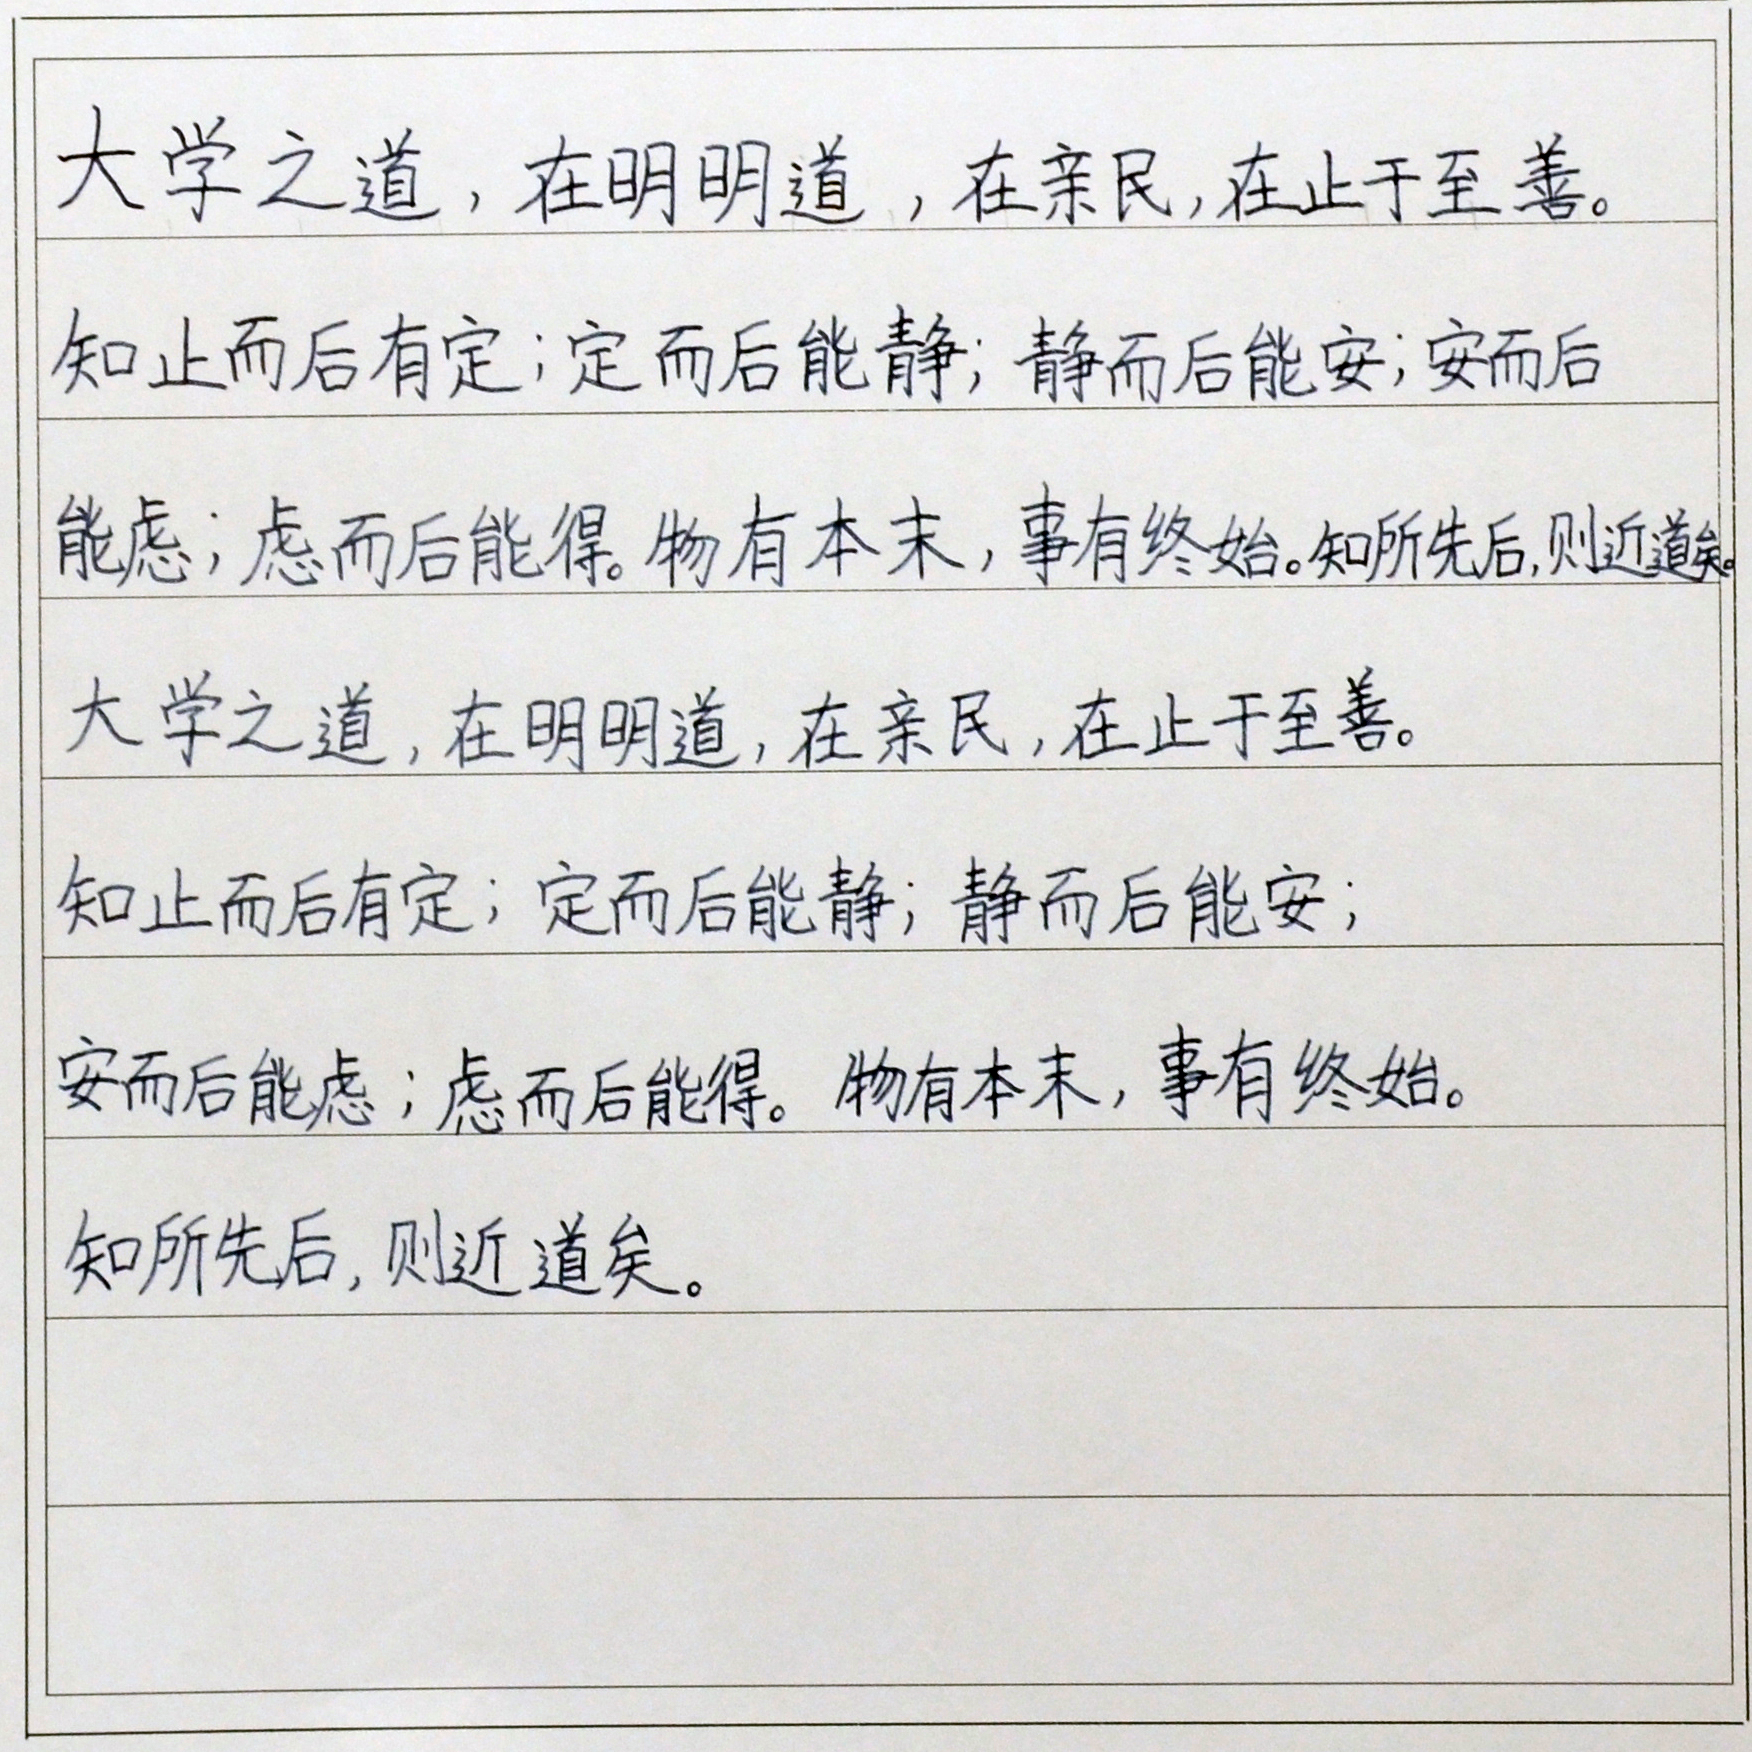 大学之道，在明明道，在亲民，在止于至善。
知止而后有定；定而后能静；静而后能安；安而后
能虑；虑而后能得。物有本末，事有终始。知所先后，则近道矣。
大学之道，在明明道，在亲民，在止于至善。
知止而后有定；定而后能静；静而后能安；
安而后能虑；虑而后能得。物有本末，事有终始。
知所先后，则近道矣。